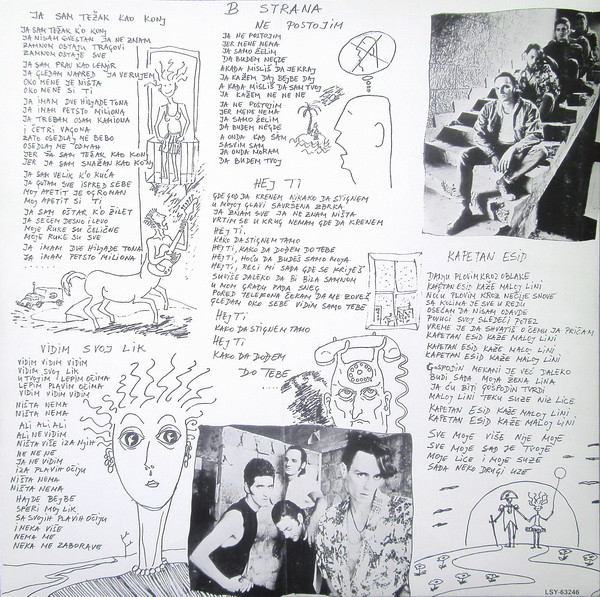 JA SAM TEŽAK KAO KONJ
JA SAM TEŽAK K'O KONJ
JA NISAM SVESTAN JA NE ZNAM
ZAMNOM OSTAJU TRAGOVI
ZAMNOM OSTAJE SVE
JA SAM PRAV KAO LENJIR
JA GLEDAM NAPRED JA VERUJEM
OKO MENE JE NIŠTA
OKO MENE SI TI
JA IMAM DVE HILJADE TONA
JA IMAM PETSTO MILIONA
JA TREBAM OSAM KAMIONA
I ČETRI VAGONA
ZATO OSEDLAJ ME BEBO
OSEDLAJ ME ODMAH
JER JA SAM TEŽAK KAO KONJ
JER JA SAM SNAŽAN KAO KONJ
JA SAM VELIK K'O KUĆA
JA GUTAM SVE ISPRED SEBE
MOJ APETIT JE OGROMAN
MOJ APETIT SI TI
JA SAM OŠTAR K'O ŽILET
JA SEČEM DESNO I LEVO
MOJE RUKE SU ČELIČNE
MOJE RUKE SU SVE
JA IMAM DVE HILJADE TONA
JA IMAM PETSTO MILIONA
.......
VIDIM SVOJ LIK
VIDIM VIDIM VIDIM
VIDIM SVOJ LIK
U TVOJIM LEPIM OČIMA
LEPIM PLAVIM OČIMA
VIDIM VIDIM VIDIM
NIŠTA NEMA
NIŠTA NEMA
ALI ALI ALI
ALI NE VIDIM
NIŠTA VIŠE IZA NJIH
NE NE NE
JA NE VIDIM
IZA PLAVIH OČIJU
NIŠTA NEMA
NIŠTA NEMA
HAJDE BEJBE
SPERI MOJ LIK
SA SVOJIH PLAVIH OČIJU
I NEKA VIŠE
NEMA ME
NEKA ME ZABORAVE
B STRANA
NE POSTOJIM
JA NE POSTOJIM
JER MENE NEMA
JA SAMO ŽELIM
DA BUDEM NEGDE
A KADA MISLIŠ DA JE KRAJ
JA KAŽEM DAJ BEJBE DAJ
A KADA MISLIŠ DA SAM TVOJ
JA KAŽEM NE NE NE
JA NE POSTOJIM
JER MENE NEMA
JA SAMO ŽELIM
DA BUDEM NEGDE
A ONDA KAD SAM
SASVIM SAM
JA ONDA MORAM
DA BUDEM TVOJ
HEJ TI
GDE GOD DA KRENEM NIKAKO DA STIGNEM
U MOJOJ GLAVI SAVRŠENA ZBRKA
JA ZNAM SVE JA NE ZNAM NIŠTA
VRTIM SE U KRUG NEMAM GDE DA KRENEM
HEJ TI
KAKO DA STIGNEM TAMO
HEJ TI, KAKO DA DOĐEM DO TEBE
HEJ TI, HOĆU DA BUDEŠ SAMO MOJA
HEJ TI, RECI MI SADA GDE SE KRIJEŠ
SUVIŠE DALEKO DA BI BILA SAMNOM
U MOM GRADU PADA SNEG
PORED TELEFONA ČEKAM DA ME ZOVEŠ
GLEDAM OKO SEBE VIDIM SAMO TEBE
HEJ TI
KAKO DA STIGNEM TAMO
HEJ TI
KAKO DA DOĐEM
DO TEBE
......
KAPETAN ESID
DANJU PLOVIM KROZ OBLAKE
KAPETAN ESID KAŽE MALOJ LINI
NOĆU PLOVIM KROZ NEČIJE SNOVE
SA KULINA JE SVE U REDU
OSEĆAM DA NISAM ODAVDE
POVUCI SVOJ SLEDEĆI POTEZ
VREME JE DA SHVATIŠ O ČEMU JA PRIČAM
KAPETAN ESID KAŽE MALOJ LINI
KAPETAN ESID KAŽE MALOJ LINI
KAPETAN ESID KAŽE MALOJ LINI
GOSPODIN MEKANI JE VEĆ DALEKO
BUDI SADA MOJA ŽENA LINA
JA ĆU BITI GOSPODIN TVRDI
MALOJ LINI TEKU SUZE NIZ LICE
KAPETAN ESID KAŽE MALOJ LINI
KAPETAN ESID KAŽE MALOJ LINI
SVE MOJE VIŠE NIJE MOJE
SVE MOJE SAD JE TVOJE
MOJE LICE I MOJE SUZE
SADA NEKO DRUGI UZE
LSY-63246